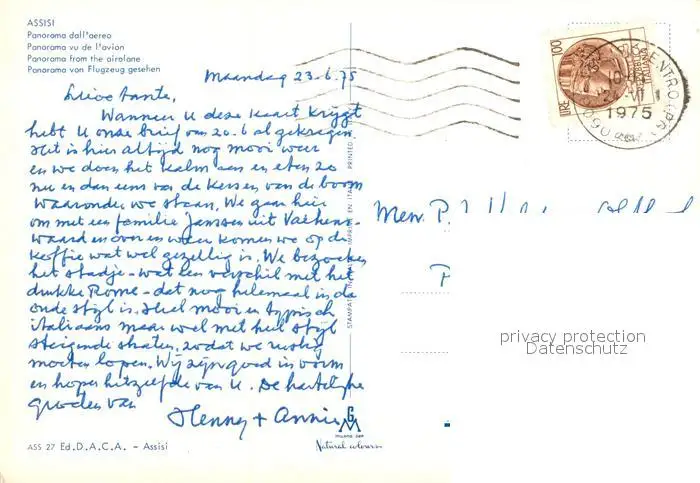 ASSISI
Panorama dall'aereo
Panorama vu de l'avion
Panorama from the airplane
Panorama von Flugzeug gesehen
Maandag 23.6.75
Lieve tante,
Wanneer U deze kaart krijgt
hebt U onze brief van 20.6 al gekregen
Het is hier altijd nog mooi weer
en we doen het kalm aan en eten zo
nu en dan eens van de kersen van de boom
waaronder we staan. We gaan hier
om met een familie Janssen uit Valkens-
waard en over en weer komen we op de
koffie wat wel gezellig is. We bezoeken
het stadje - wat een verschil met het
drukke Rome - dat nog helemaal in de
oude stijl is. Heel mooi en typisch
italiaans maar wel met heel stijl
steigende straten, zodat we rustig
moeten lopen. Wij zijn goed in vorm
en hopen hetzelfde van U. De hartelijke
groeten van
Henny + Annie
ASS 27 Ed.D.A.C.A. - Assisi
PRINTED IN ITALY
STAMPATO IN
GM
MILANO
Natural colours
LIRE 100
CENTRO (PG)
1975
060
Mev. P.
P
privacy protection
Datenschutz